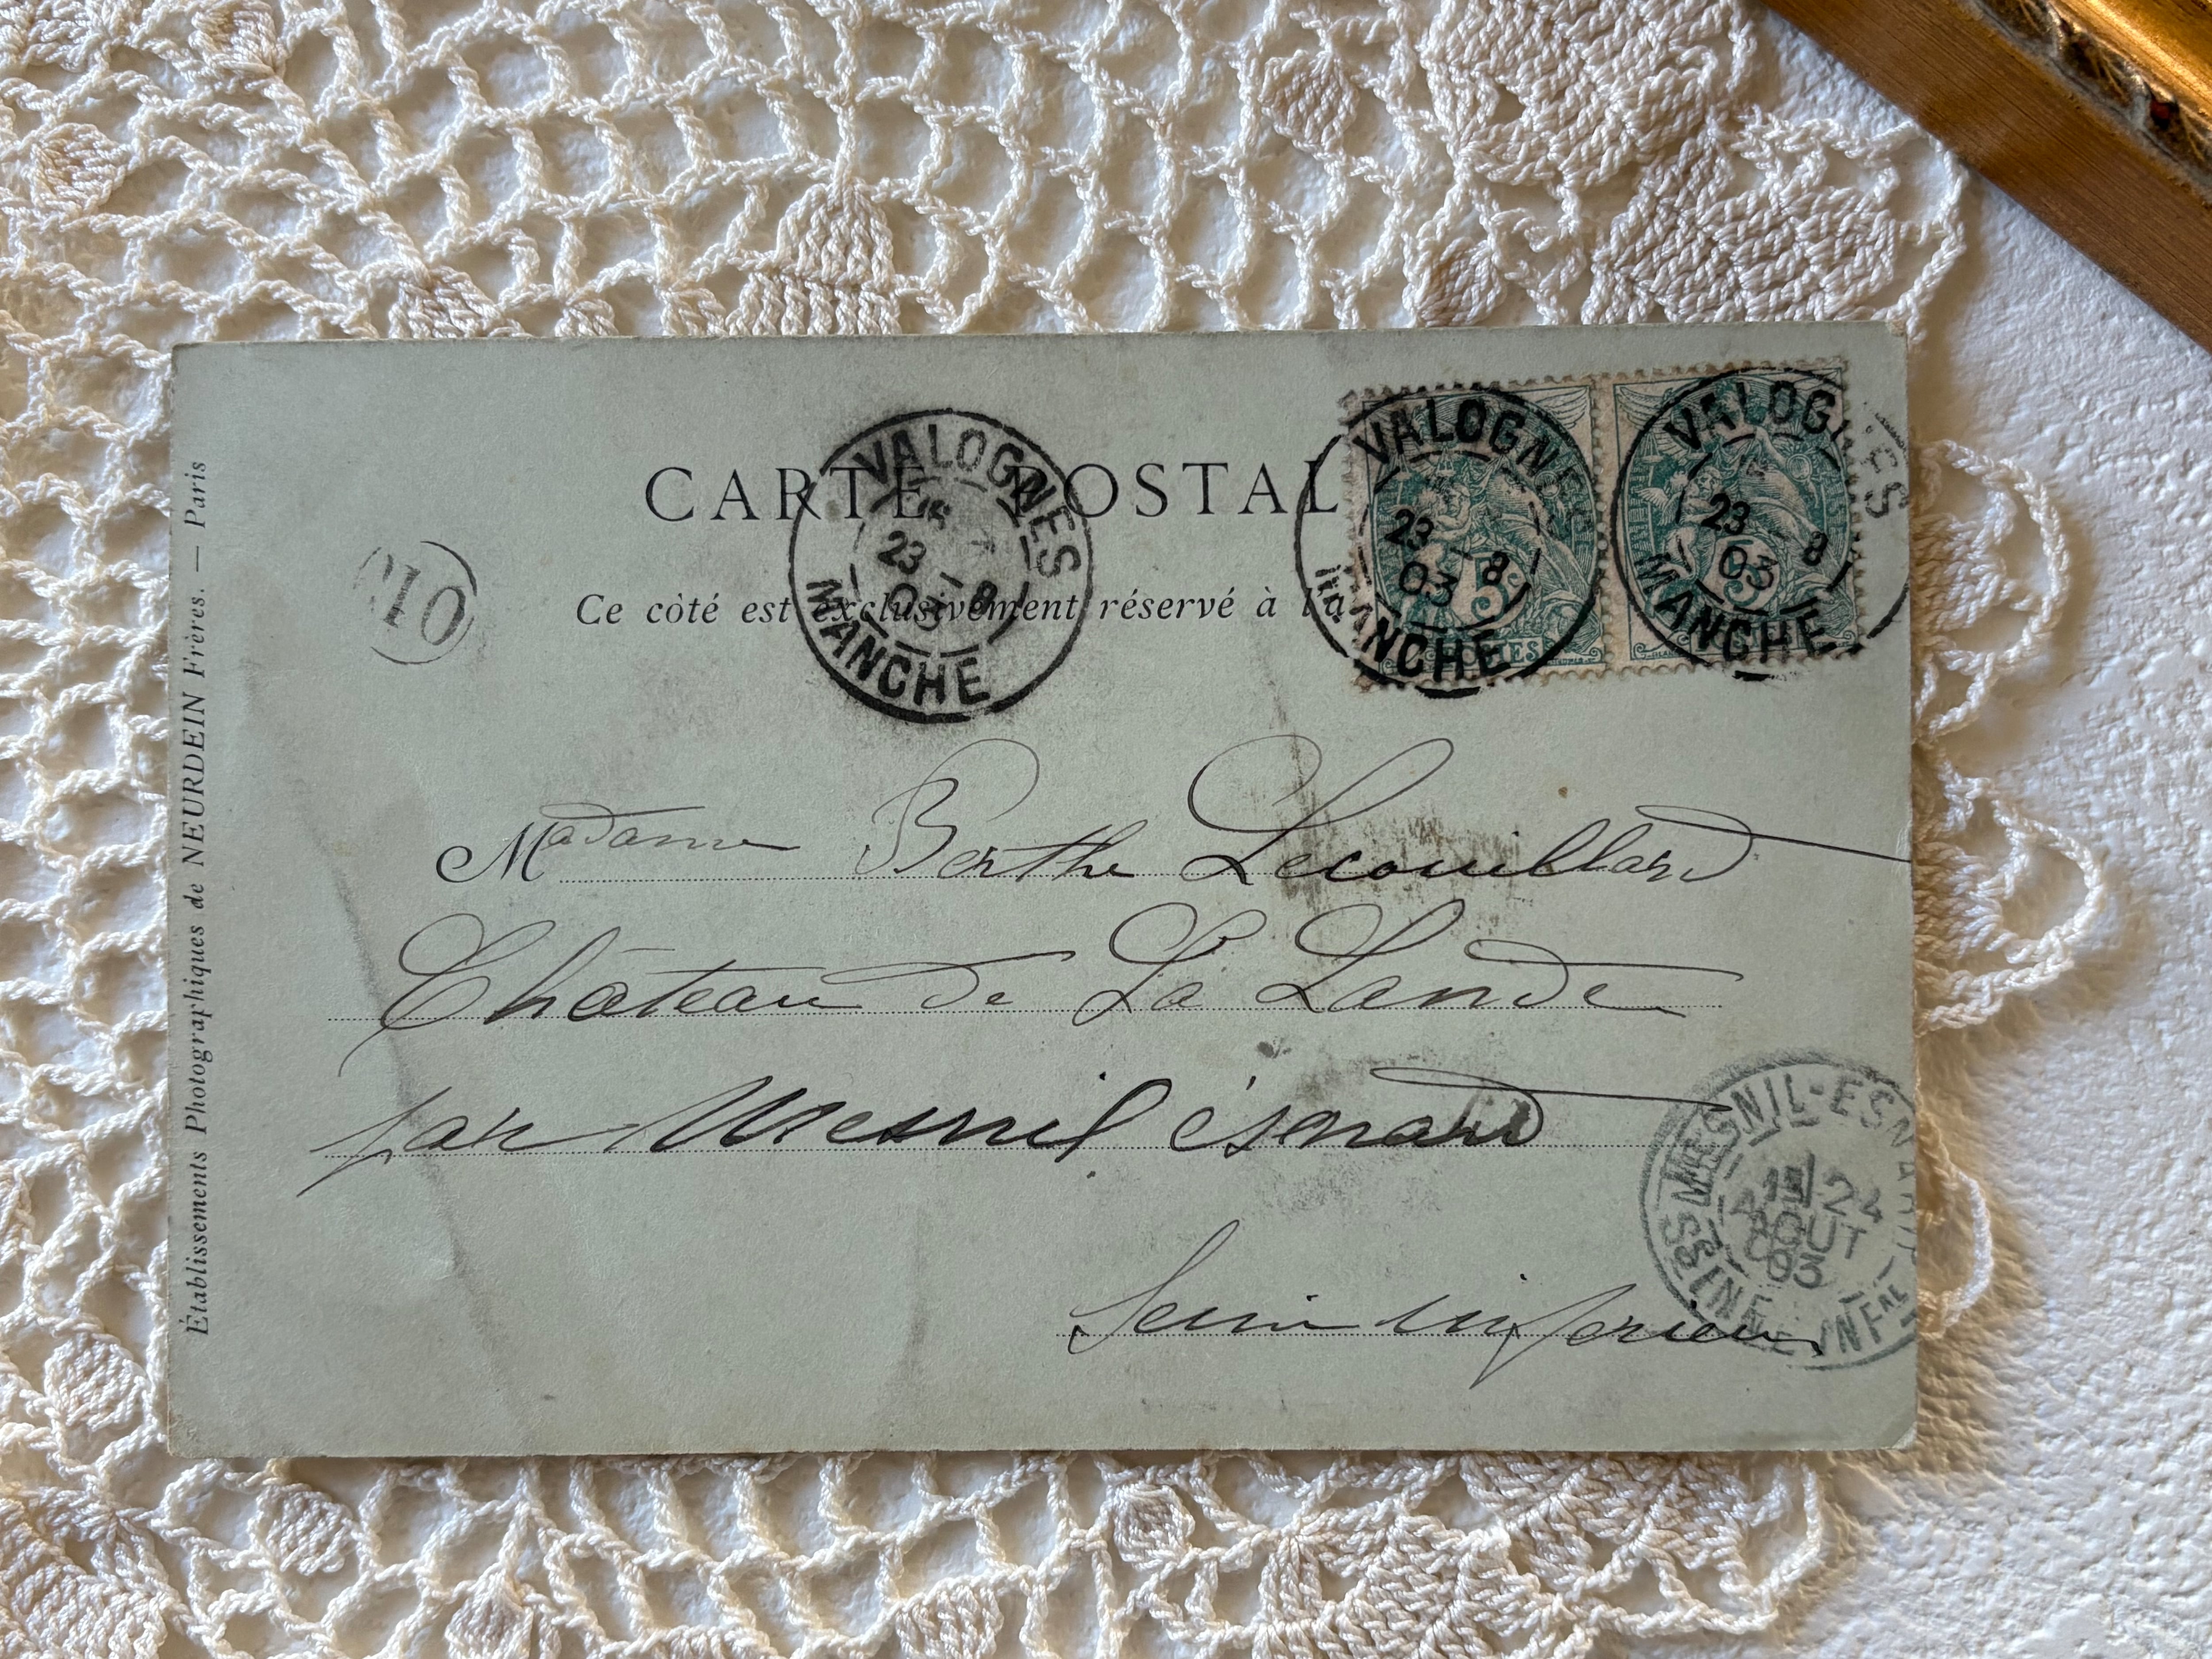 CARTE POSTALE
Ce côté est exclusivement réservé à l'a
VALOGNES
23 - 8
03
MANCHE
VALOGNES
23 - 8
03
5c
POSTES
MANCHE
VALOGNES
23 - 8
03
5
MANCHE
Établissements Photographiques de NEURDEIN Frères. — Paris
Madame Berthe Lecouillard
Château de La Lande
par Mesnil ésnard
Seine inferieur
MESNIL-ESNARD
24
AOUT
03
SEINE INFRE